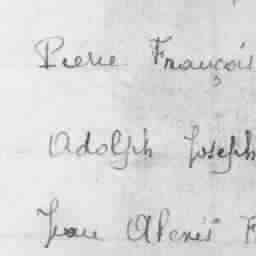 Pierre François
Adolph Joseph
Jean Alexis F